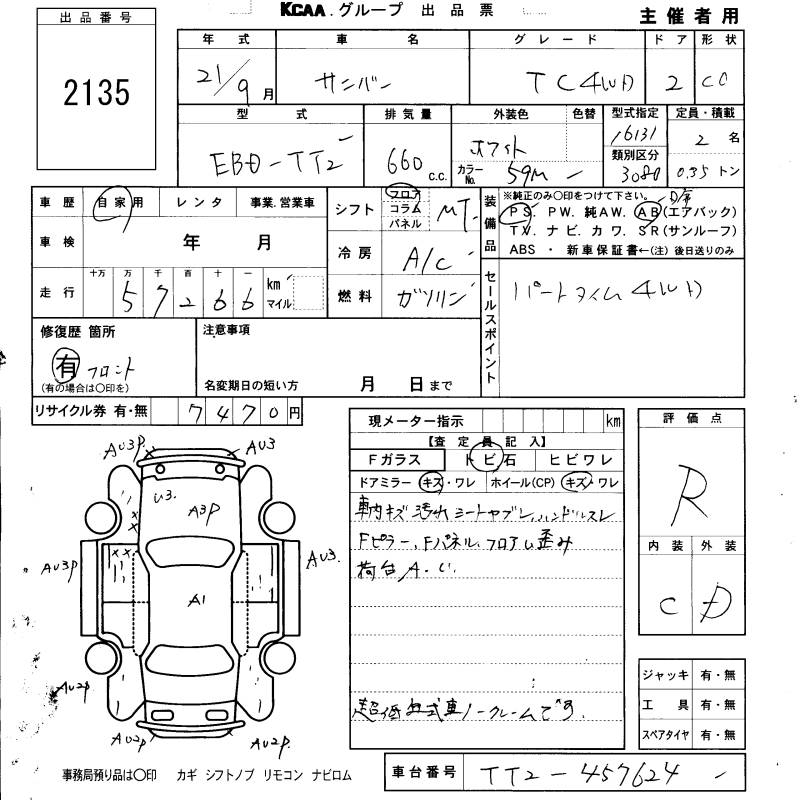 KCAA.グループ 出品票
主催者用
出品番号
2135
年式 車名 グレード ドア 形状
21/9月 サンバー TC4WD 2 CO
型式 排気量 外装色 色替 型式指定 定員・積載
EBD-TT2 660 c.c. ホワイト 16131 2名
カラーNo. 59M 類別区分 3080 0.35トン
車歴 自家用 レンタ 事業.営業車
シフト フロア コラム パネル MT
装備品 ※純正のみ〇印をつけて下さい。
PS. PW. 純AW. AB(エアバック)
TV. ナビ. カワ. SR(サンルーフ)
ABS ・ 新車保証書←(注) 後日送りのみ
車検 年 月
冷房 A/C
走行 十万 万 千 百 十 一
57266 km マイル
燃料 ガソリン
セールスポイント パートタイム4WD
修復歴 箇所
有 フロント
(有の場合は〇印を)
注意事項
名変期日の短い方 月 日まで
リサイクル券 有・無 7470円
現メーター指示 km
【査定員記入】
Fガラス トビ石 ヒビワレ
ドアミラー キズ・ワレ ホイール(CP) キズ・ワレ
車内キズ 汚れ シートヤブレ ハンドルスレ
Fピラー、Fパネル、フロアム歪み
荷台A・U.
超低年式車ノークレームです.
評価点
R
内装 外装
C D
ジャッキ 有・無
工具 有・無
スペアタイヤ 有・無
AU3P AU3
U3. A3P
AU3P A1 AU3.
AU2P
AU2P AU2P.
事務局預り品は〇印 カギ シフトノブ リモコン ナビロム
車台番号 TT2-457624